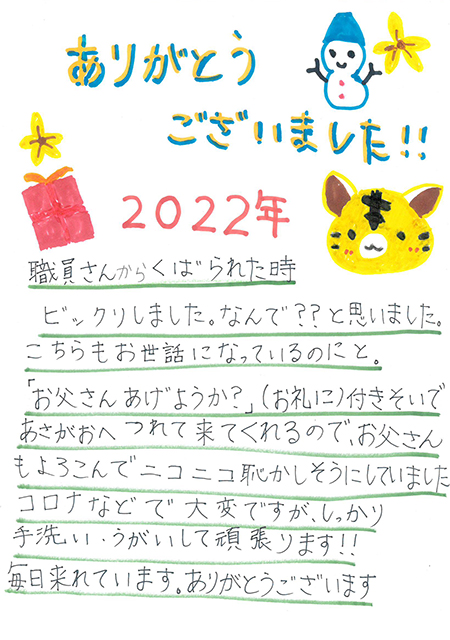 ありがとう
ございました!!
2022年
職員さんからくばられた時
ビックリしました。なんで??と思いました。
こちらもお世話になっているのにと。
「お父さんあげようか?」(お礼に)付きそいで
あさがおへ つれて来てくれるので、お父さん
もよろこんでニコニコ恥かしそうにしていました
コロナなどで大変ですが、しっかり
手洗い・うがいして頑張ります!!
毎日来れています。ありがとうございます